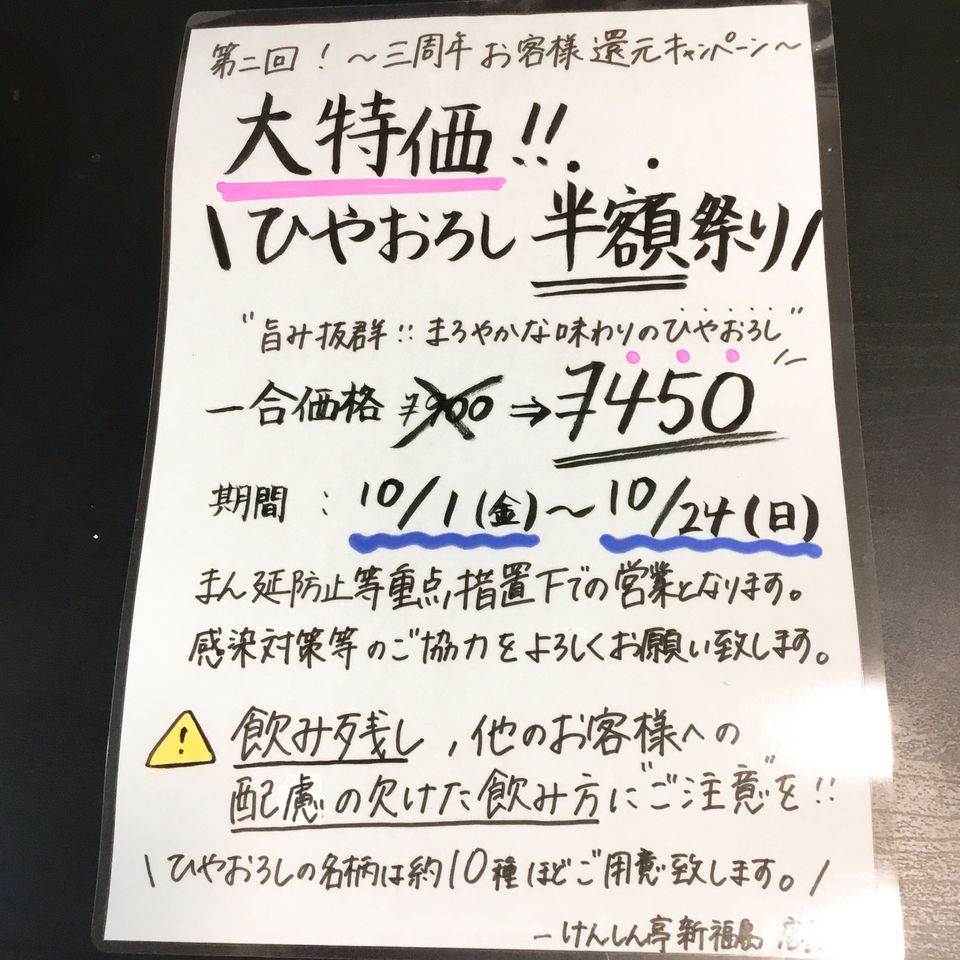 第二回!～三周年お客様還元キャンペーン～
大特価!!
\ひやおろし半額祭り/
"旨み抜群!!まろやかな味わりのひやおろし"
一合価格 ¥900 ⇒ ¥450
期間 : 10/1(金)～10/24(日)
まん延防止等重点措置下での営業となります。
感染対策等のご協力をよろしくお願い致します。
! 飲み残し,他のお客様への
配慮の欠けた飲み方に"ご注意"を!!
\ひやおろしの名柄は約10種ほどご用意致します。/
-けんしん亭新福島